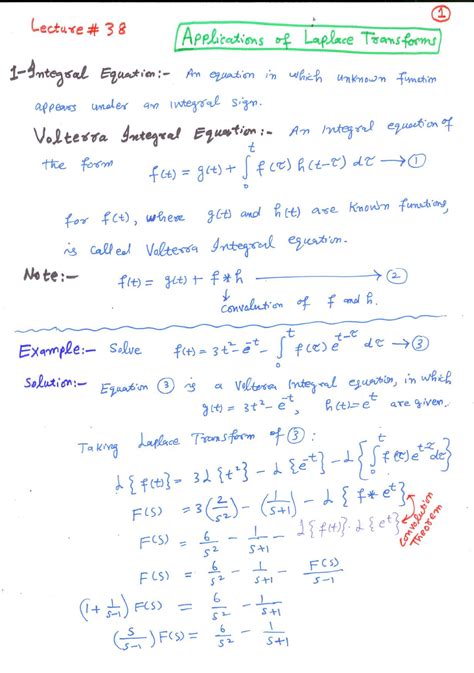 1
Lecture # 38
Applications of Laplace Transforms
1-Integral Equation:- An equation in which unknown function
appears under an integral sign.
Volterra Integral Equation:- An integral equation of
the form f(t) = g(t) + ∫₀ᵗ f(τ) h(t-τ) dτ → ①
for f(t), where g(t) and h(t) are known functions,
is called Volterra Integral equation.
Note:- f(t) = g(t) + f * h → ②
convolution of f and h.
Example:- Solve f(t) = 3t² - e⁻ᵗ - ∫₀ᵗ f(τ) e^(t-τ) dτ → ③
Solution:- Equation ③ is a Volterra Integral equation, in which
g(t) = 3t² - e⁻ᵗ, h(t) = eᵗ are given.
Taking Laplace Transform of ③:
ℒ{f(t)} = 3ℒ{t²} - ℒ{e⁻ᵗ} - ℒ{∫₀ᵗ f(τ) e^(t-τ) dτ}
F(s) = 3(2/s²) - (1/(s+1)) - ℒ{f * eᵗ}
F(s) = 6/s² - 1/(s+1) - ℒ{f(t)}·ℒ{eᵗ}
Convolution Theorem
F(s) = 6/s² - 1/(s+1) - F(s)/(s-1)
(1 + 1/(s-1)) F(s) = 6/s² - 1/(s+1)
(s/(s-1)) F(s) = 6/s² - 1/(s+1)